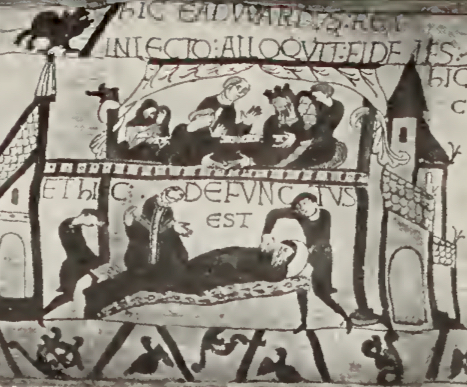 hIC EADVVARDVS: REX
IN LECTO: ALLOQVIT: FIDELES:
hIC
C
ET hIC: DEFVNCTVS
EST